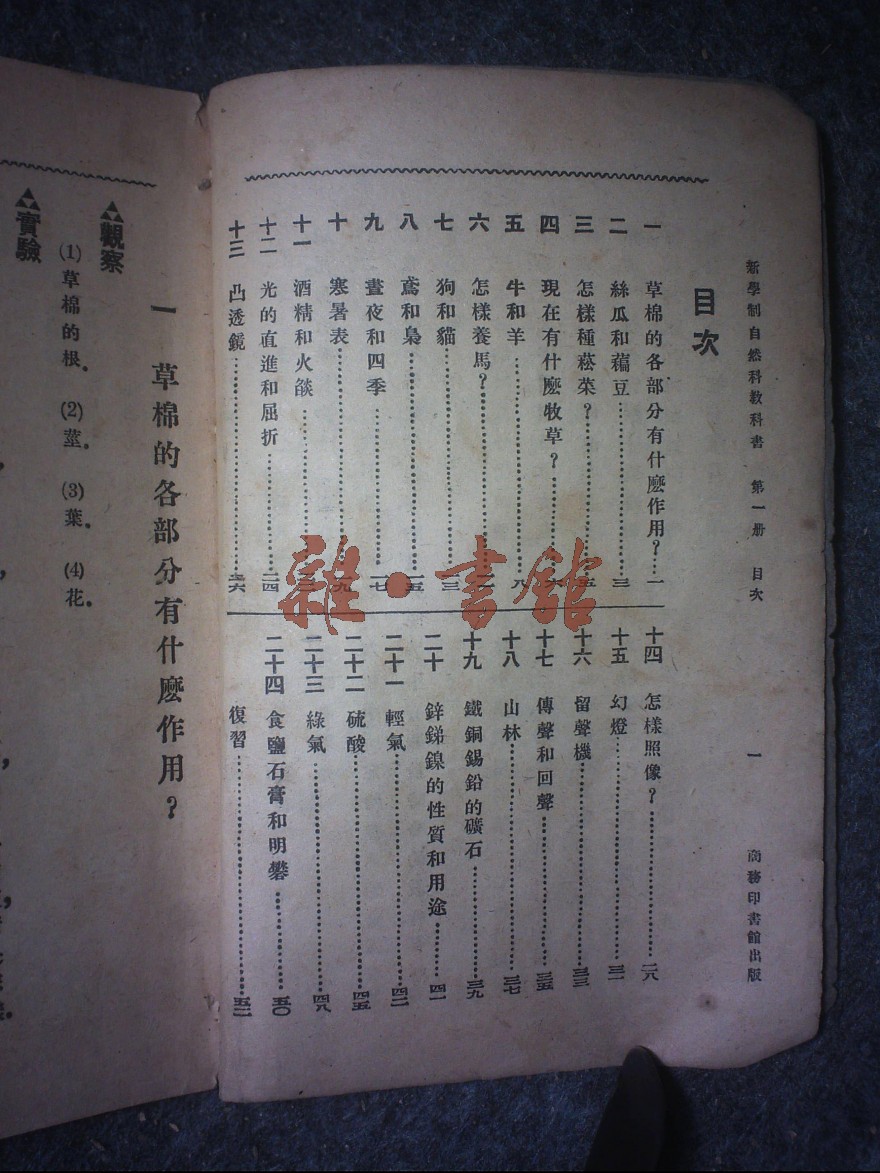 新學制自然科教科書 第一册 目次 一 商務印書館出版
目次
一 草棉的各部分有什麽作用？……一
二 絲瓜和藊豆……三
三 怎樣種菘菜？……五
四 現在有什麽牧草？……
五 牛和羊……八
六 怎樣養馬？……
七 狗和貓……一三
八 鳶和梟……一五
九 晝夜和四季……一七
十 寒暑表……一九
十一 酒精和火燄……
十二 光的直進和屈折……二四
十三 凸透鏡……二六
十四 怎樣照像？……二八
十五 幻燈……三一
十六 留聲機……三三
十七 傳聲和回聲……三五
十八 山林……三七
十九 鐵銅錫鉛的礦石……三九
二十 鋅銻鎳的性質和用途……四一
二十一 輕氣……四二
二十二 硫酸……四五
二十三 綠氣……四八
二十四 食鹽石膏和明礬……五〇
復習……五二
雜·書館
一 草棉的各部分有什麽作用？
觀察
(1)草棉的根。 (2)莖。 (3)葉。 (4)花。
實驗